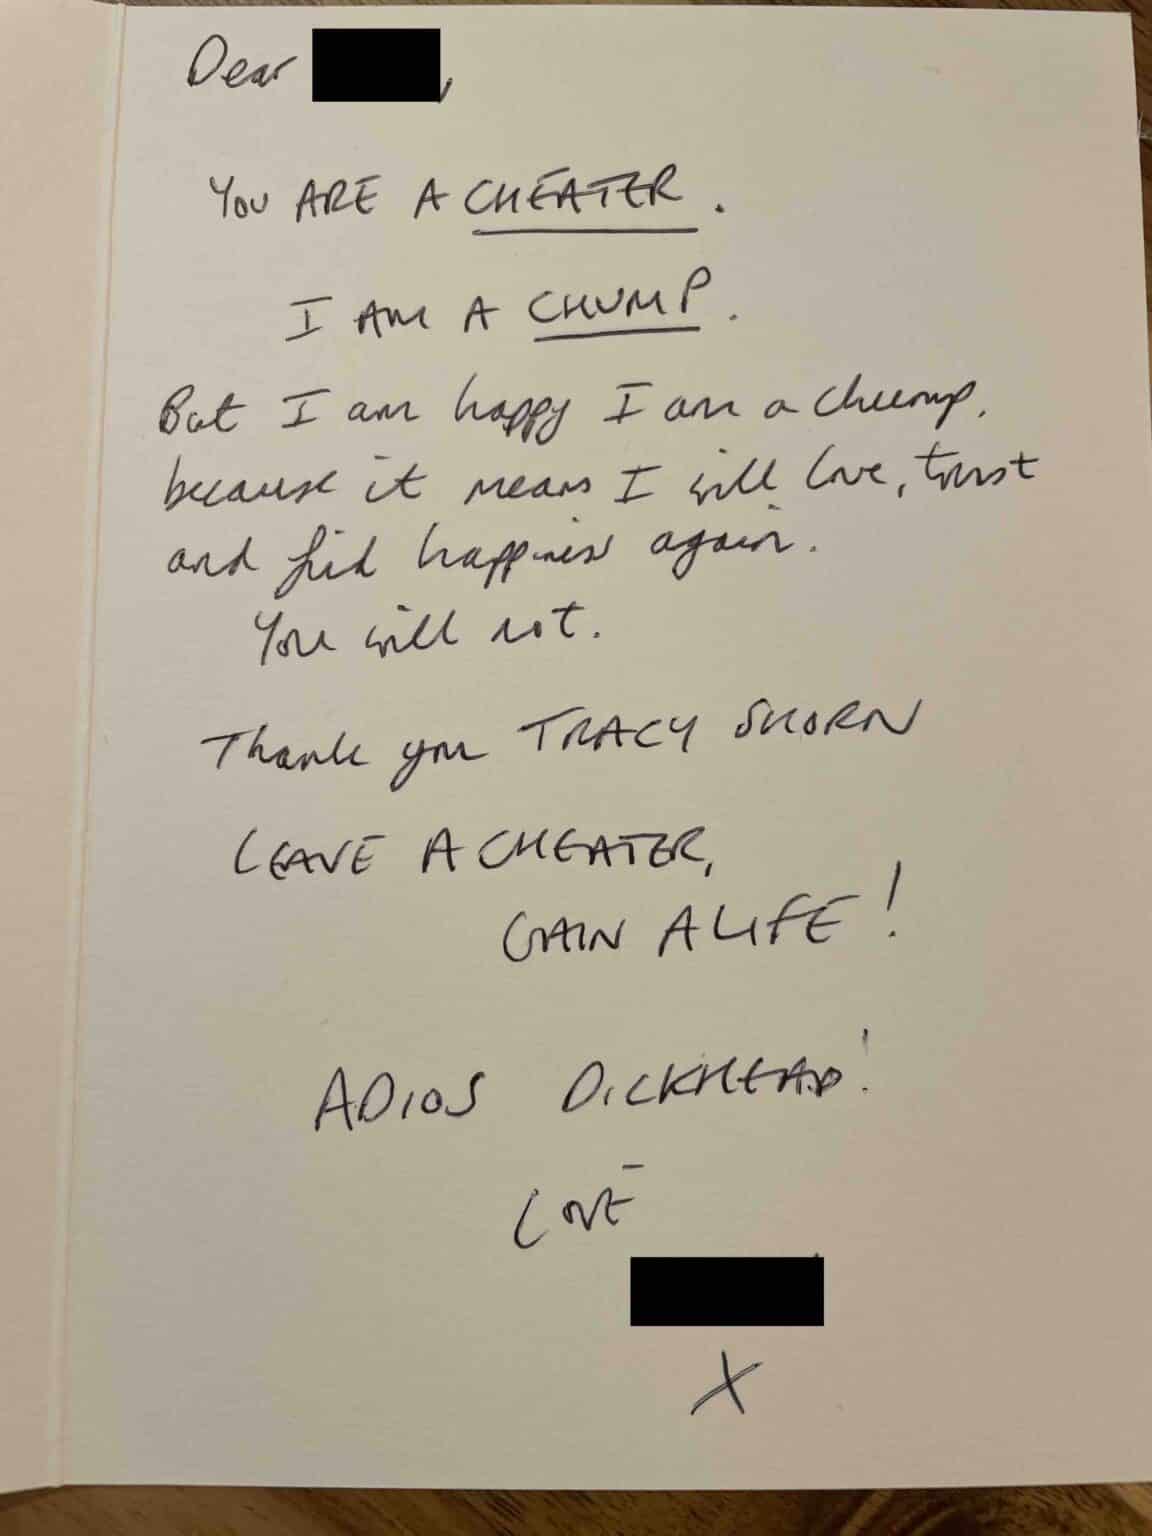 Dear ,
YOU ARE A CHEATER.
I AM A CHUMP.
But I am happy I am a chump,
because it means I will love, trust
and find happiness again.
You will not.
Thank you TRACY SHORN
LEAVE A CHEATER,
GAIN A LIFE!
ADIOS DICKHEAD!
LOVE
X